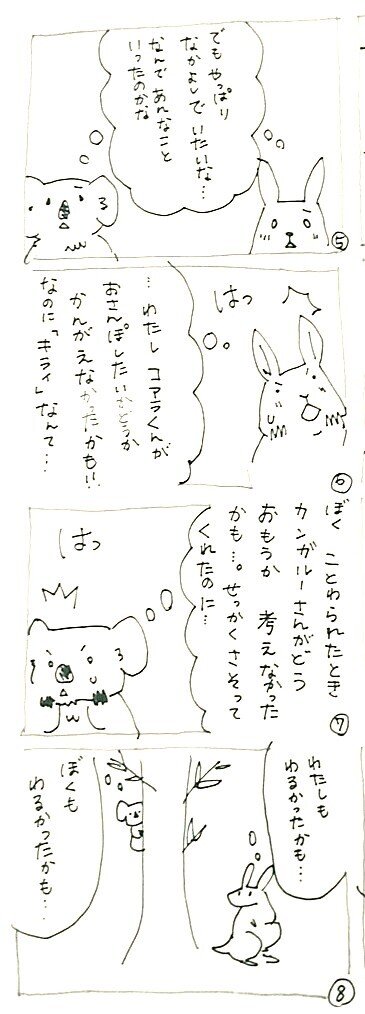 でも やっぱり
なかよしで いたいな…
なんで あんなこと
いったのかな
⑤
はっ
… わたし コアラくんが
おさんぽしたいかどうか
かんがえなかったかも!!
なのに「キライ」なんて…
⑥
ぼく ことわられたとき
カンガルーさんがどう
おもうか 考えなかった
かも…。せっかくさそって
くれたのに…
はっ
⑦
わたしも
わるかったかも…
ぼくも
わるかったかも…
⑧